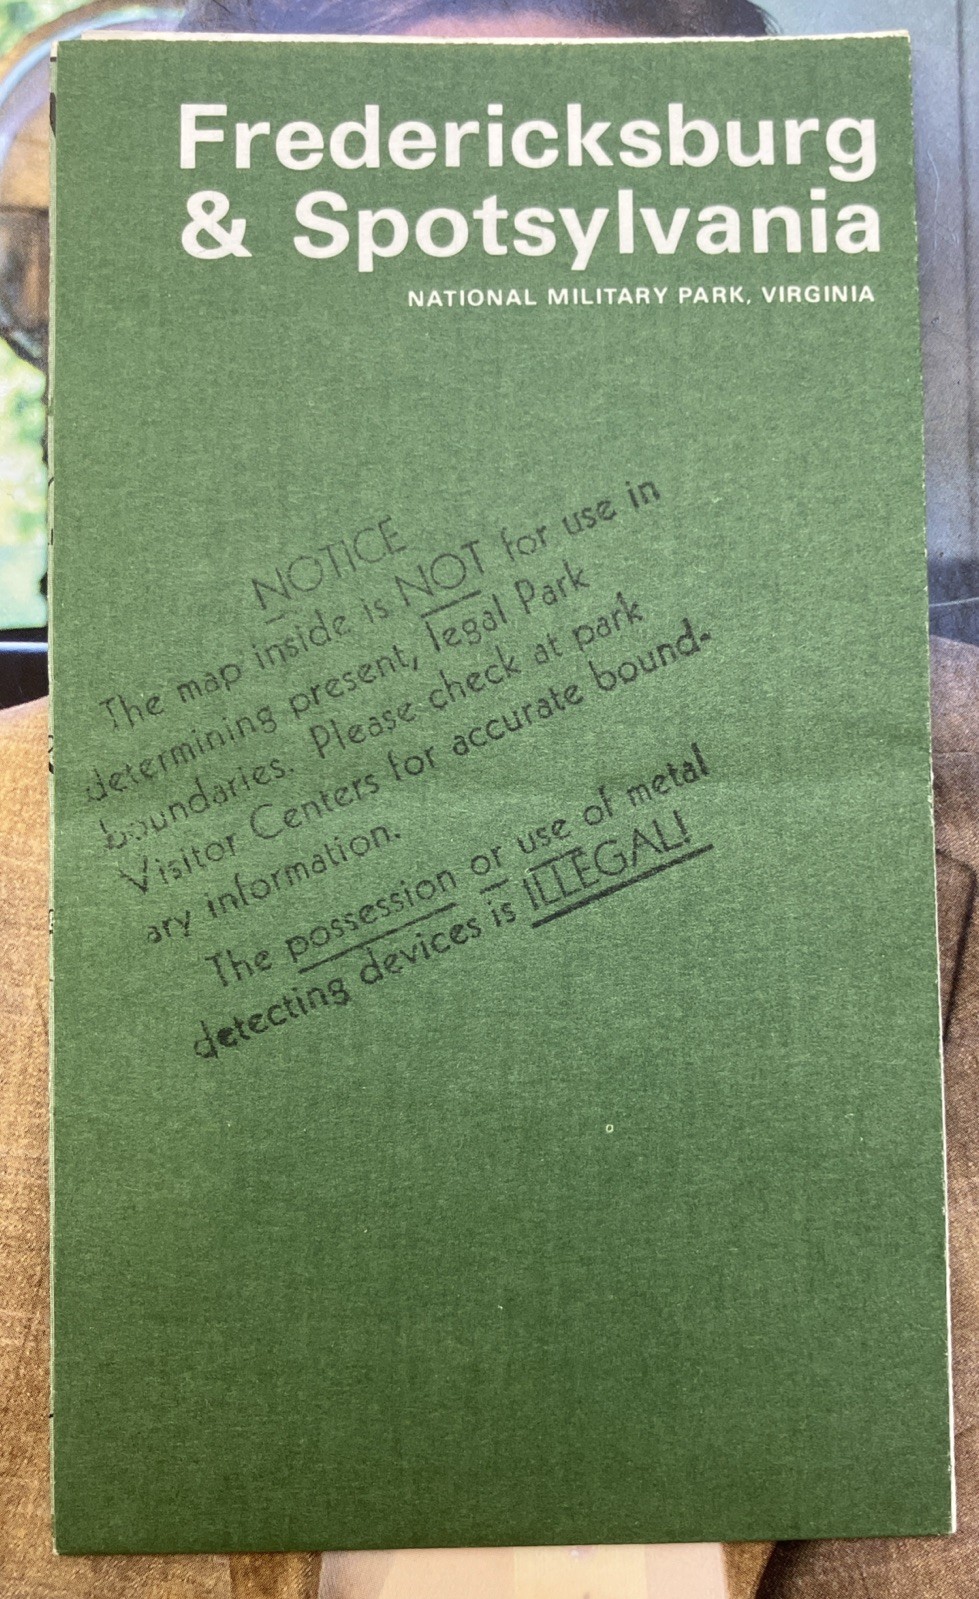 Fredericksburg
& Spotsylvania
NATIONAL MILITARY PARK, VIRGINIA
NOTICE
The map inside is NOT for use in
determining present, legal Park
boundaries. Please check at park
Visitor Centers for accurate bound-
ary information.
The possession or use of metal
detecting devices is ILLEGAL!